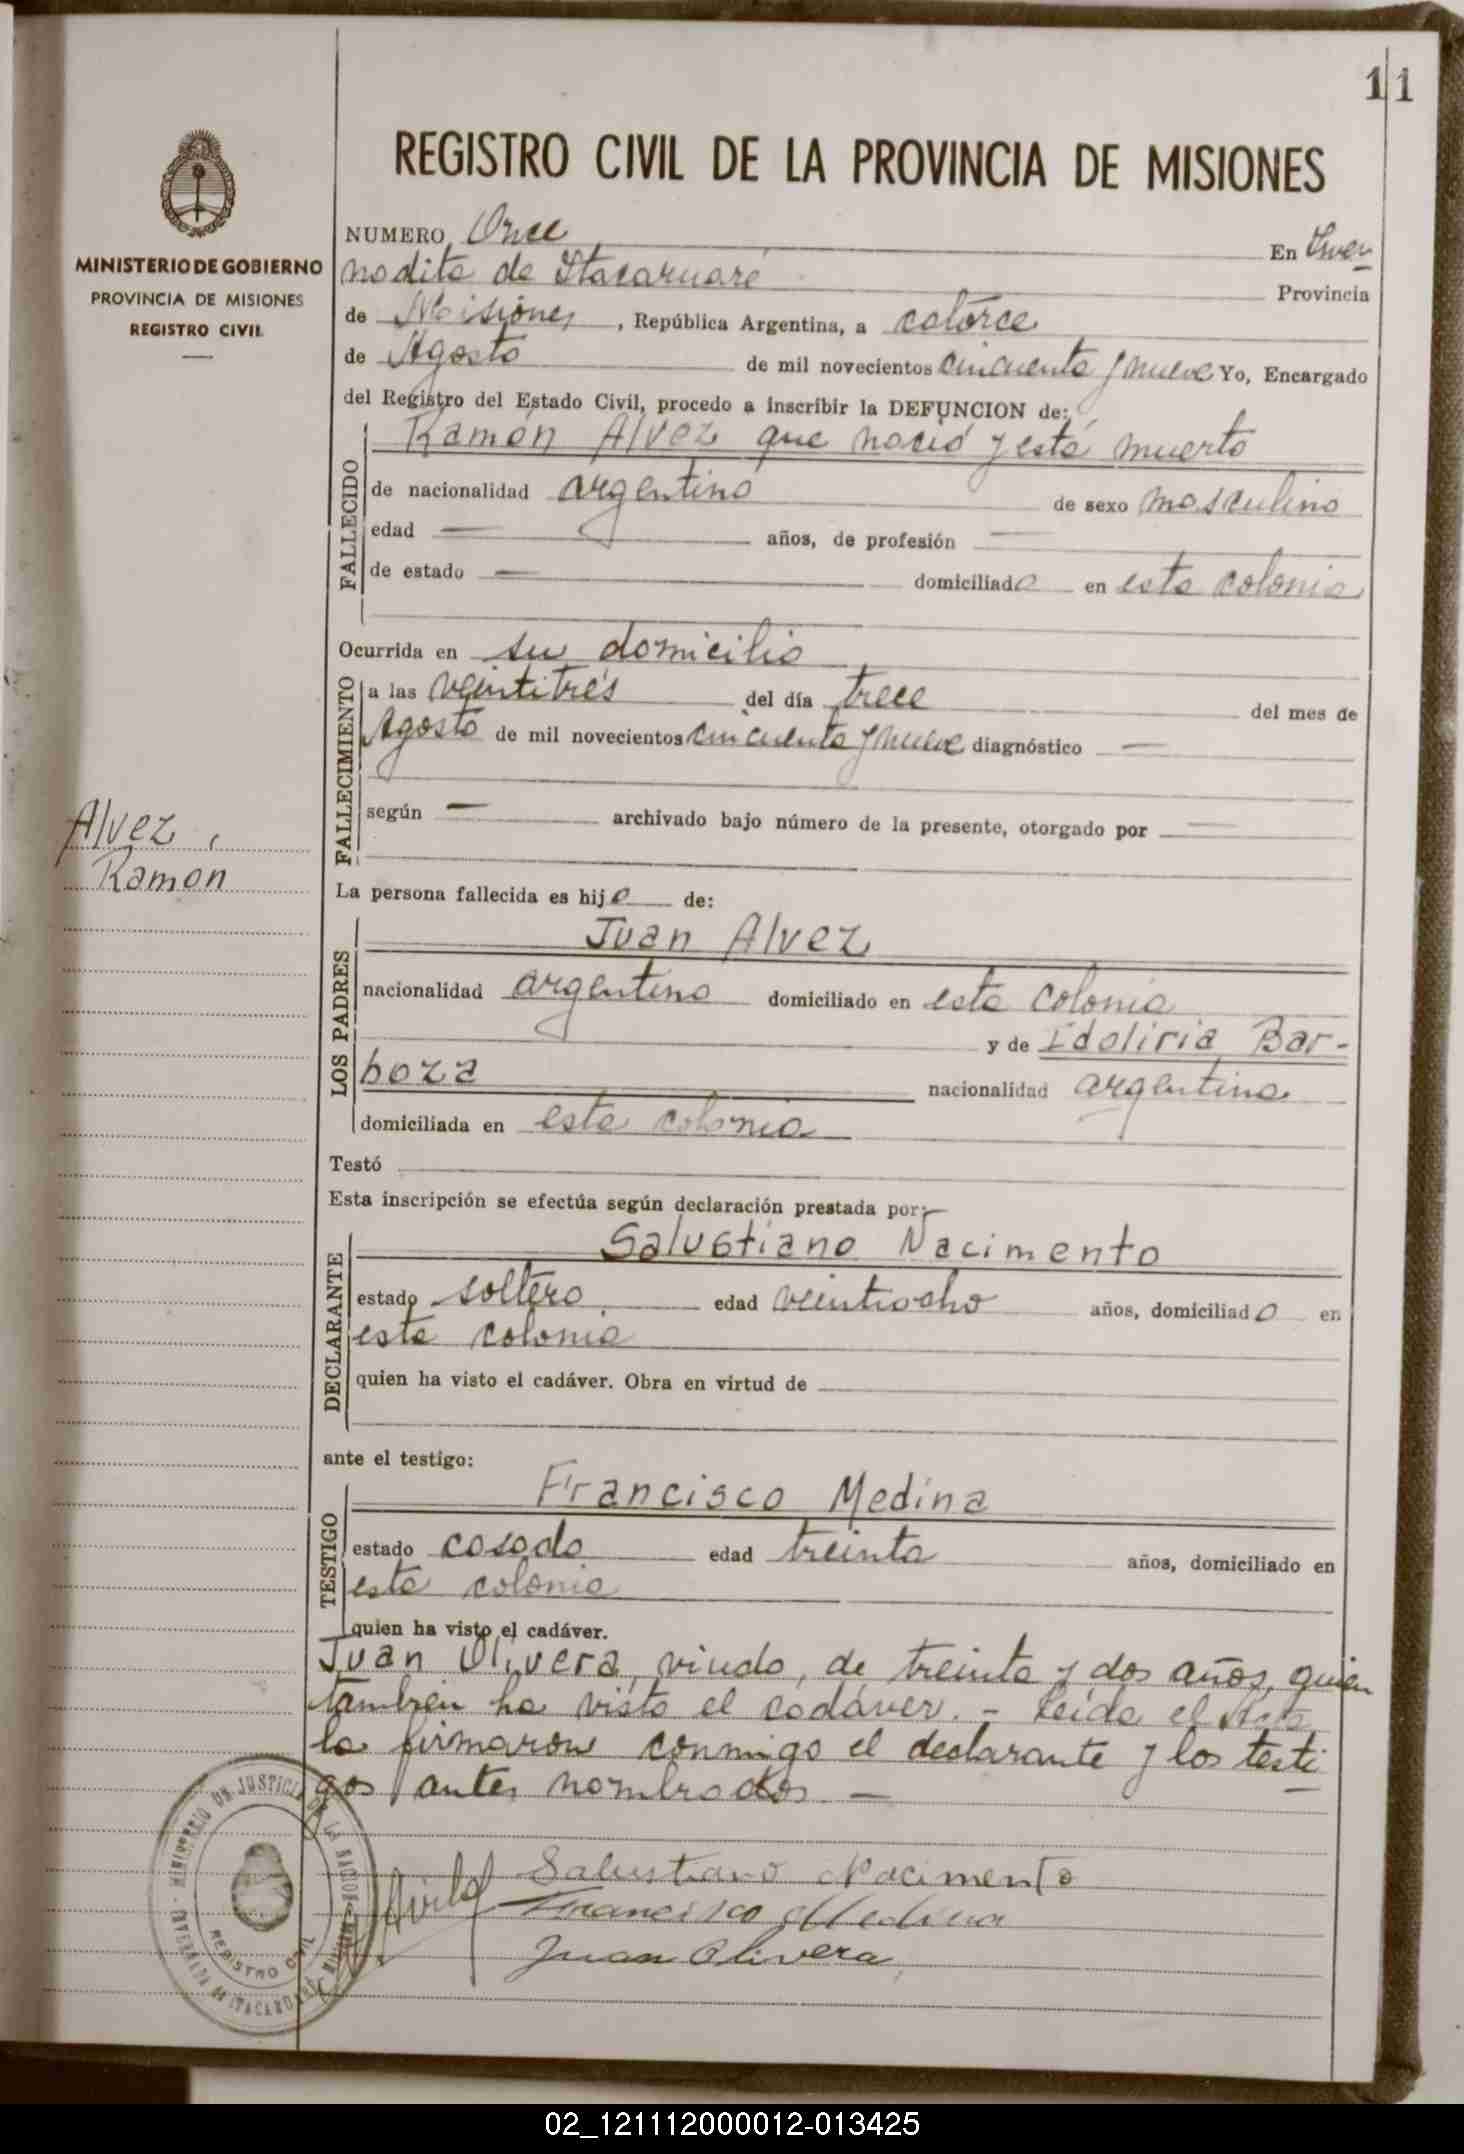 11
REGISTRO CIVIL DE LA PROVINCIA DE MISIONES
MINISTERIO DE GOBIERNO
PROVINCIA DE MISIONES
REGISTRO CIVIL
NUMERO Once En Inver
nadita de Itacaruaré Provincia
de Misiones, República Argentina, a catorce
de Agosto de mil novecientos cincuenta y nueve Yo, Encargado
del Registro del Estado Civil, procedo a inscribir la DEFUNCION de:
FALLECIDO
Ramón Alvez que nació y está muerto
de nacionalidad argentino de sexo masculino
edad — años, de profesión —
de estado — domiciliado en esta colonia
Ocurrida en su domicilio
FALLECIMIENTO
a las veintitrés del día trece del mes de
Agosto de mil novecientos cincuenta y nueve diagnóstico —
según — archivado bajo número de la presente, otorgado por —
Alvez,
Ramon
La persona fallecida es hijo de:
LOS PADRES
Juan Alvez
nacionalidad argentino domiciliado en esta colonia
y de Idoliria Bar-
boza nacionalidad argentina
domiciliada en esta colonia
Testó
Esta inscripción se efectúa según declaración prestada por:
DECLARANTE
Salustiano Nacimento
estado soltero edad veintiocho años, domiciliado en
esta colonia
quien ha visto el cadáver. Obra en virtud de
ante el testigo:
TESTIGO
Francisco Medina
estado casado edad treinta años, domiciliado en
esta colonia
quien ha visto el cadáver.
Juan Olivera, viudo, de treinta y dos años, quien
también ha visto el cadáver. - Leída el Acta
la firmaron conmigo el declarante y los testi
gos antes nombrados. —
Salustiano Nacimento
Francisco Medina
Juan Olivera
MINISTERIO DE JUSTICIA
REGISTRO CIVIL
ITACARUARÉ
02_121112000012-013425